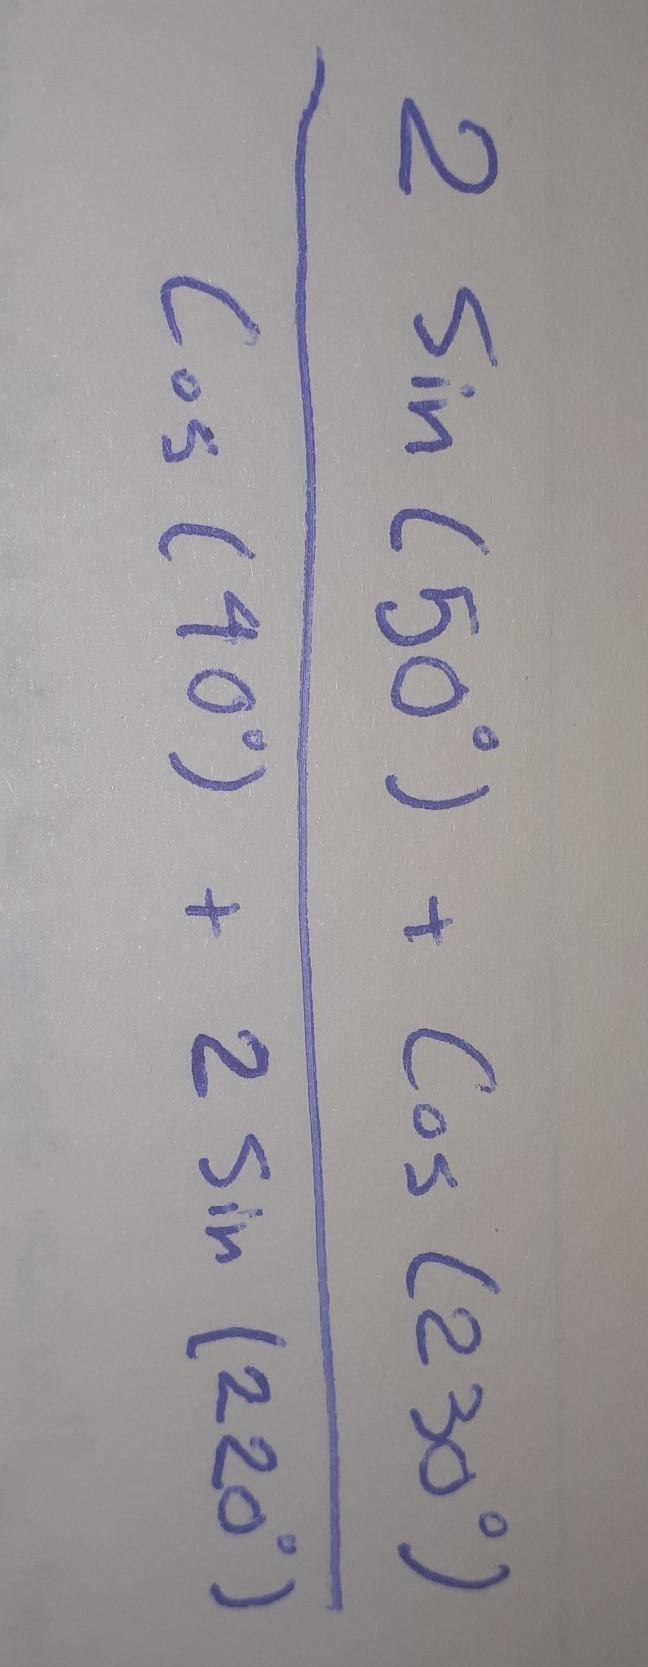 2 Sin (50°) + Cos (230°)
Cos (40°) + 2 Sin (220°)